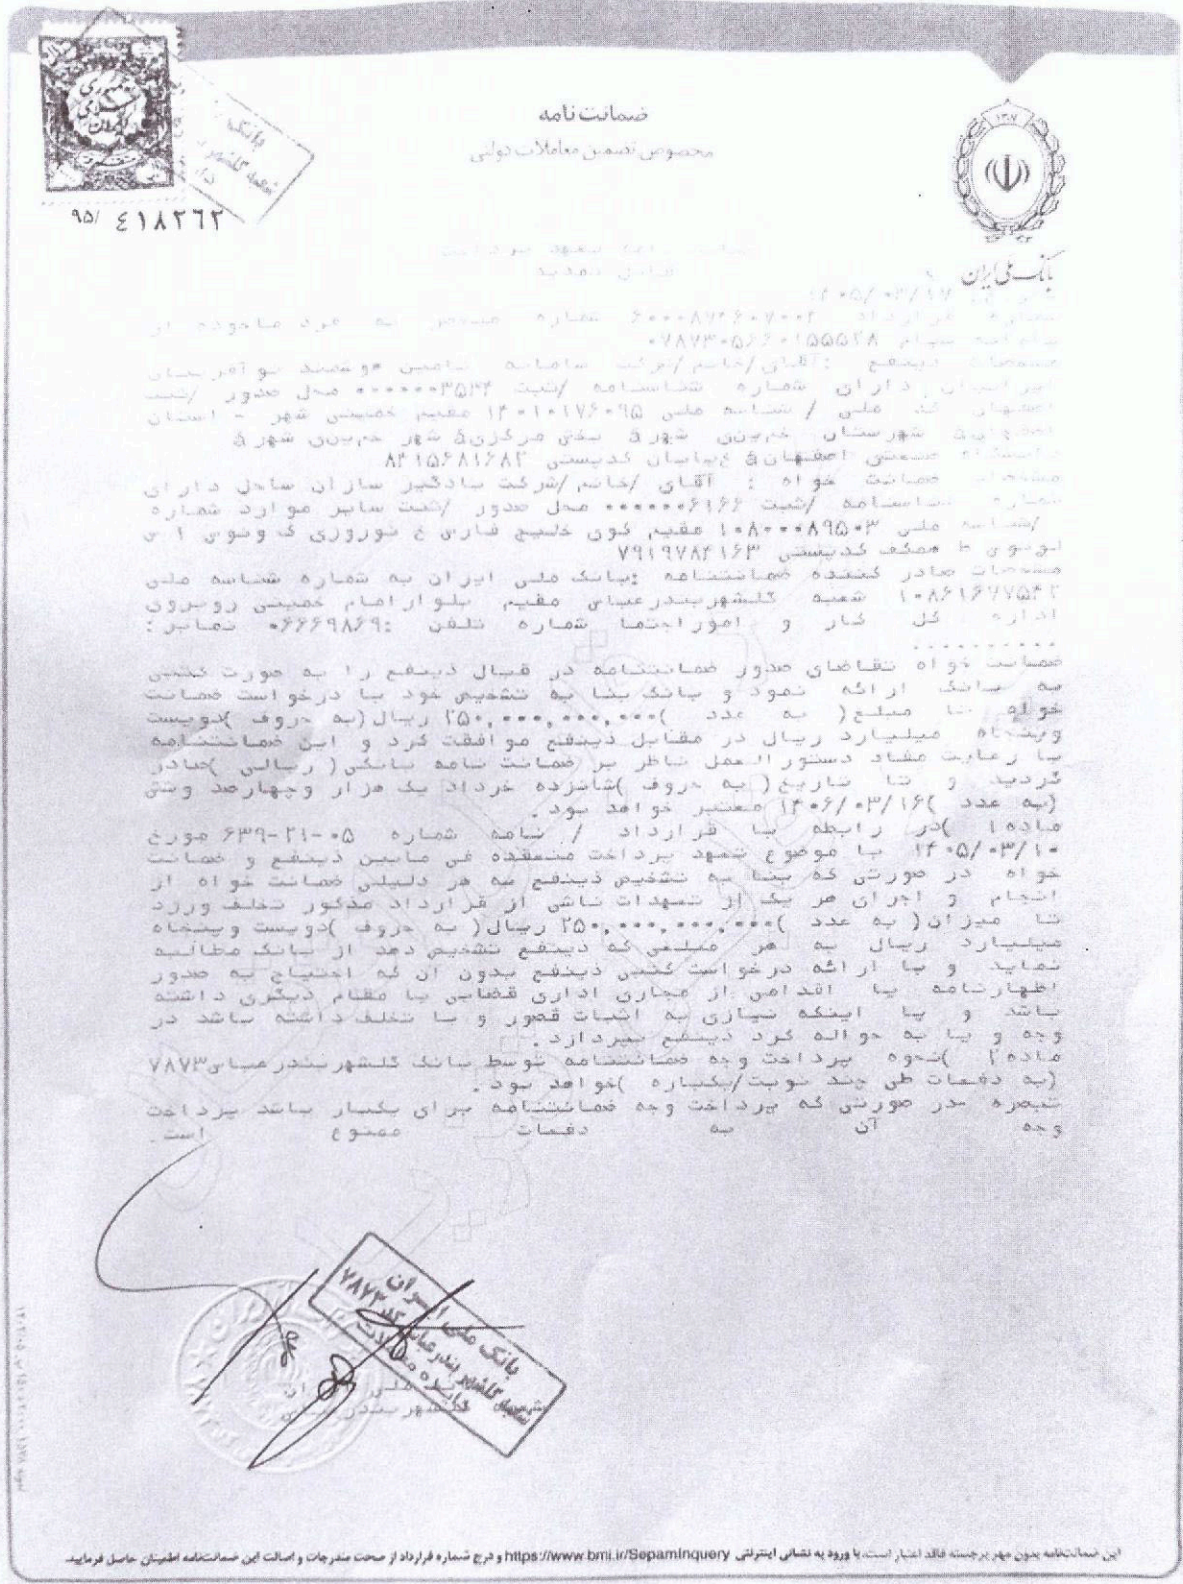 ضمانت نامه
مخصوص تضمین معاملات دولتی
بانک
شعبه گلشهر
۹۵/ ٤١٨٢٦٢
بانک ملی ایران
قابل تمدید
۱۴۰۵/۰۳/۱۷
شماره قرارداد ۶۰۰۰۸۷۴۶۰۷۰۰۲ شماره منحصر به فرد ماخوذه از
سامانه سپام
مشخصات ذینفع :آقای/خانم/شرکت سامانه تامین هوشمند نوآفرینان
دارای شماره شناسنامه /ثبت ۰۰۰۰۰۰۳۵۳۴ محل صدور /ثبت
اصفهان کد ملی / شناسه ملی ۱۴۰۱۰۱۷۶۰۹۵ مقیم خمینی شهر - استان
شهرستان شهرå بخش مرکزیå شهر شهرå
صنعتی اصفهانå خیابان کدپستی ۸۴۱۵۶۸۱۶۸۲
مشخصات ضمانت خواه : آقای /خانم/شرکت بادگیر سازان ساحل دارای
شماره شناسنامه /ثبت ۰۰۰۰۰۰۶۱۶۶ محل صدور /ثبت سایر موارد شماره
/شناسه ملی ۱۰۸۰۰۰۸۹۵۰۳ مقیم کوی خلیج فارس خ نوروزی ک ونوس ۱ س
ط همکف کدپستی ۷۹۱۹۷۸۴۱۶۳
مشخصات صادر کننده ضمانتنامه :بانک ملی ایران به شماره شناسه ملی
۱۰۸۶۱۶۷۷۵۴۲ شعبه گلشهربندرعباس مقیم بلوارامام خمینی روبروی
اداره کل کار و اموراجتما شماره تلفن :۰۶۶۶۹۸۶۹ نمابر:
..........
ضمانت خواه تقاضای صدور ضمانتنامه در قبال ذینفع را به صورت کتبی
به بانک ارائه نمود و بانک بنا به تشخیص خود با درخواست ضمانت
خواه تا مبلغ( به عدد )۲۵۰,۰۰۰,۰۰۰,۰۰۰ ریال(به حروف )دویست
وپنجاه میلیارد ریال در مقابل ذینفع موافقت کرد و این ضمانتنامه
با رعایت مفاد دستورالعمل ناظر بر ضمانت نامه بانکی( ریالی )صادر
گردید و تا تاریخ( به حروف )شانزده خرداد یک هزار وچهارصد وشش
(به عدد )۱۴۰۶/۰۳/۱۶ معتبر خواهد بود.
ماده۱ )در رابطه با قرارداد / نامه شماره ۰۵-۲۱-۶۳۹ مورخ
۱۴۰۵/۰۳/۱۰ با موضوع تعهد پرداخت منعقده فی مابین ذینفع و ضمانت
خواه در صورتی که بنا به تشخیص ذینفع به هر دلیلی ضمانت خواه از
انجام و اجرای هر یک از تعهدات ناشی از قرارداد مذکور تخلف ورزد
تا میزان( به عدد )۲۵۰,۰۰۰,۰۰۰,۰۰۰ ریال( به حروف )دویست وپنجاه
میلیارد ریال به هر مبلغی که ذینفع تشخیص دهد از بانک مطالبه
نماید و با ارائه درخواست کتبی ذینفع بدون آن که احتیاج به صدور
اظهارنامه یا اقدامی از مجاری اداری قضایی یا مقام دیگری داشته
باشد و یا اینکه نیازی به اثبات قصور و یا تخلف داشته باشد در
وجه و یا به حواله کرد ذینفع بپردازد.
ماده۲ )نحوه پرداخت وجه ضمانتنامه توسط بانک گلشهربندرعباس۷۸۷۳
(به دفعات طی چند نوبت/یکباره )خواهد بود.
تبصره :در صورتی که پرداخت وجه ضمانتنامه برای یکبار باشد پرداخت
وجه آن به دفعات ممنوع است.
بانک ملی ایران
شعبه گلشهر بندرعباس کد ۷۸۷۳
دایره معاملات
بانک ملی ایران
گلشهربندرعباس
این ضمانتنامه بدون مهر برجسته فاقد اعتبار است، با ورود به نشانی اینترنتی https://www.bmi.ir/SepamInquery و درج شماره قرارداد از صحت مندرجات و اصالت این ضمانتنامه اطمینان حاصل فرمایید.